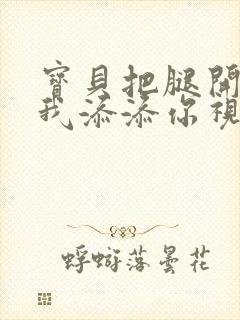 寶貝把腿開
我添添你視
蜉蝣落曇花